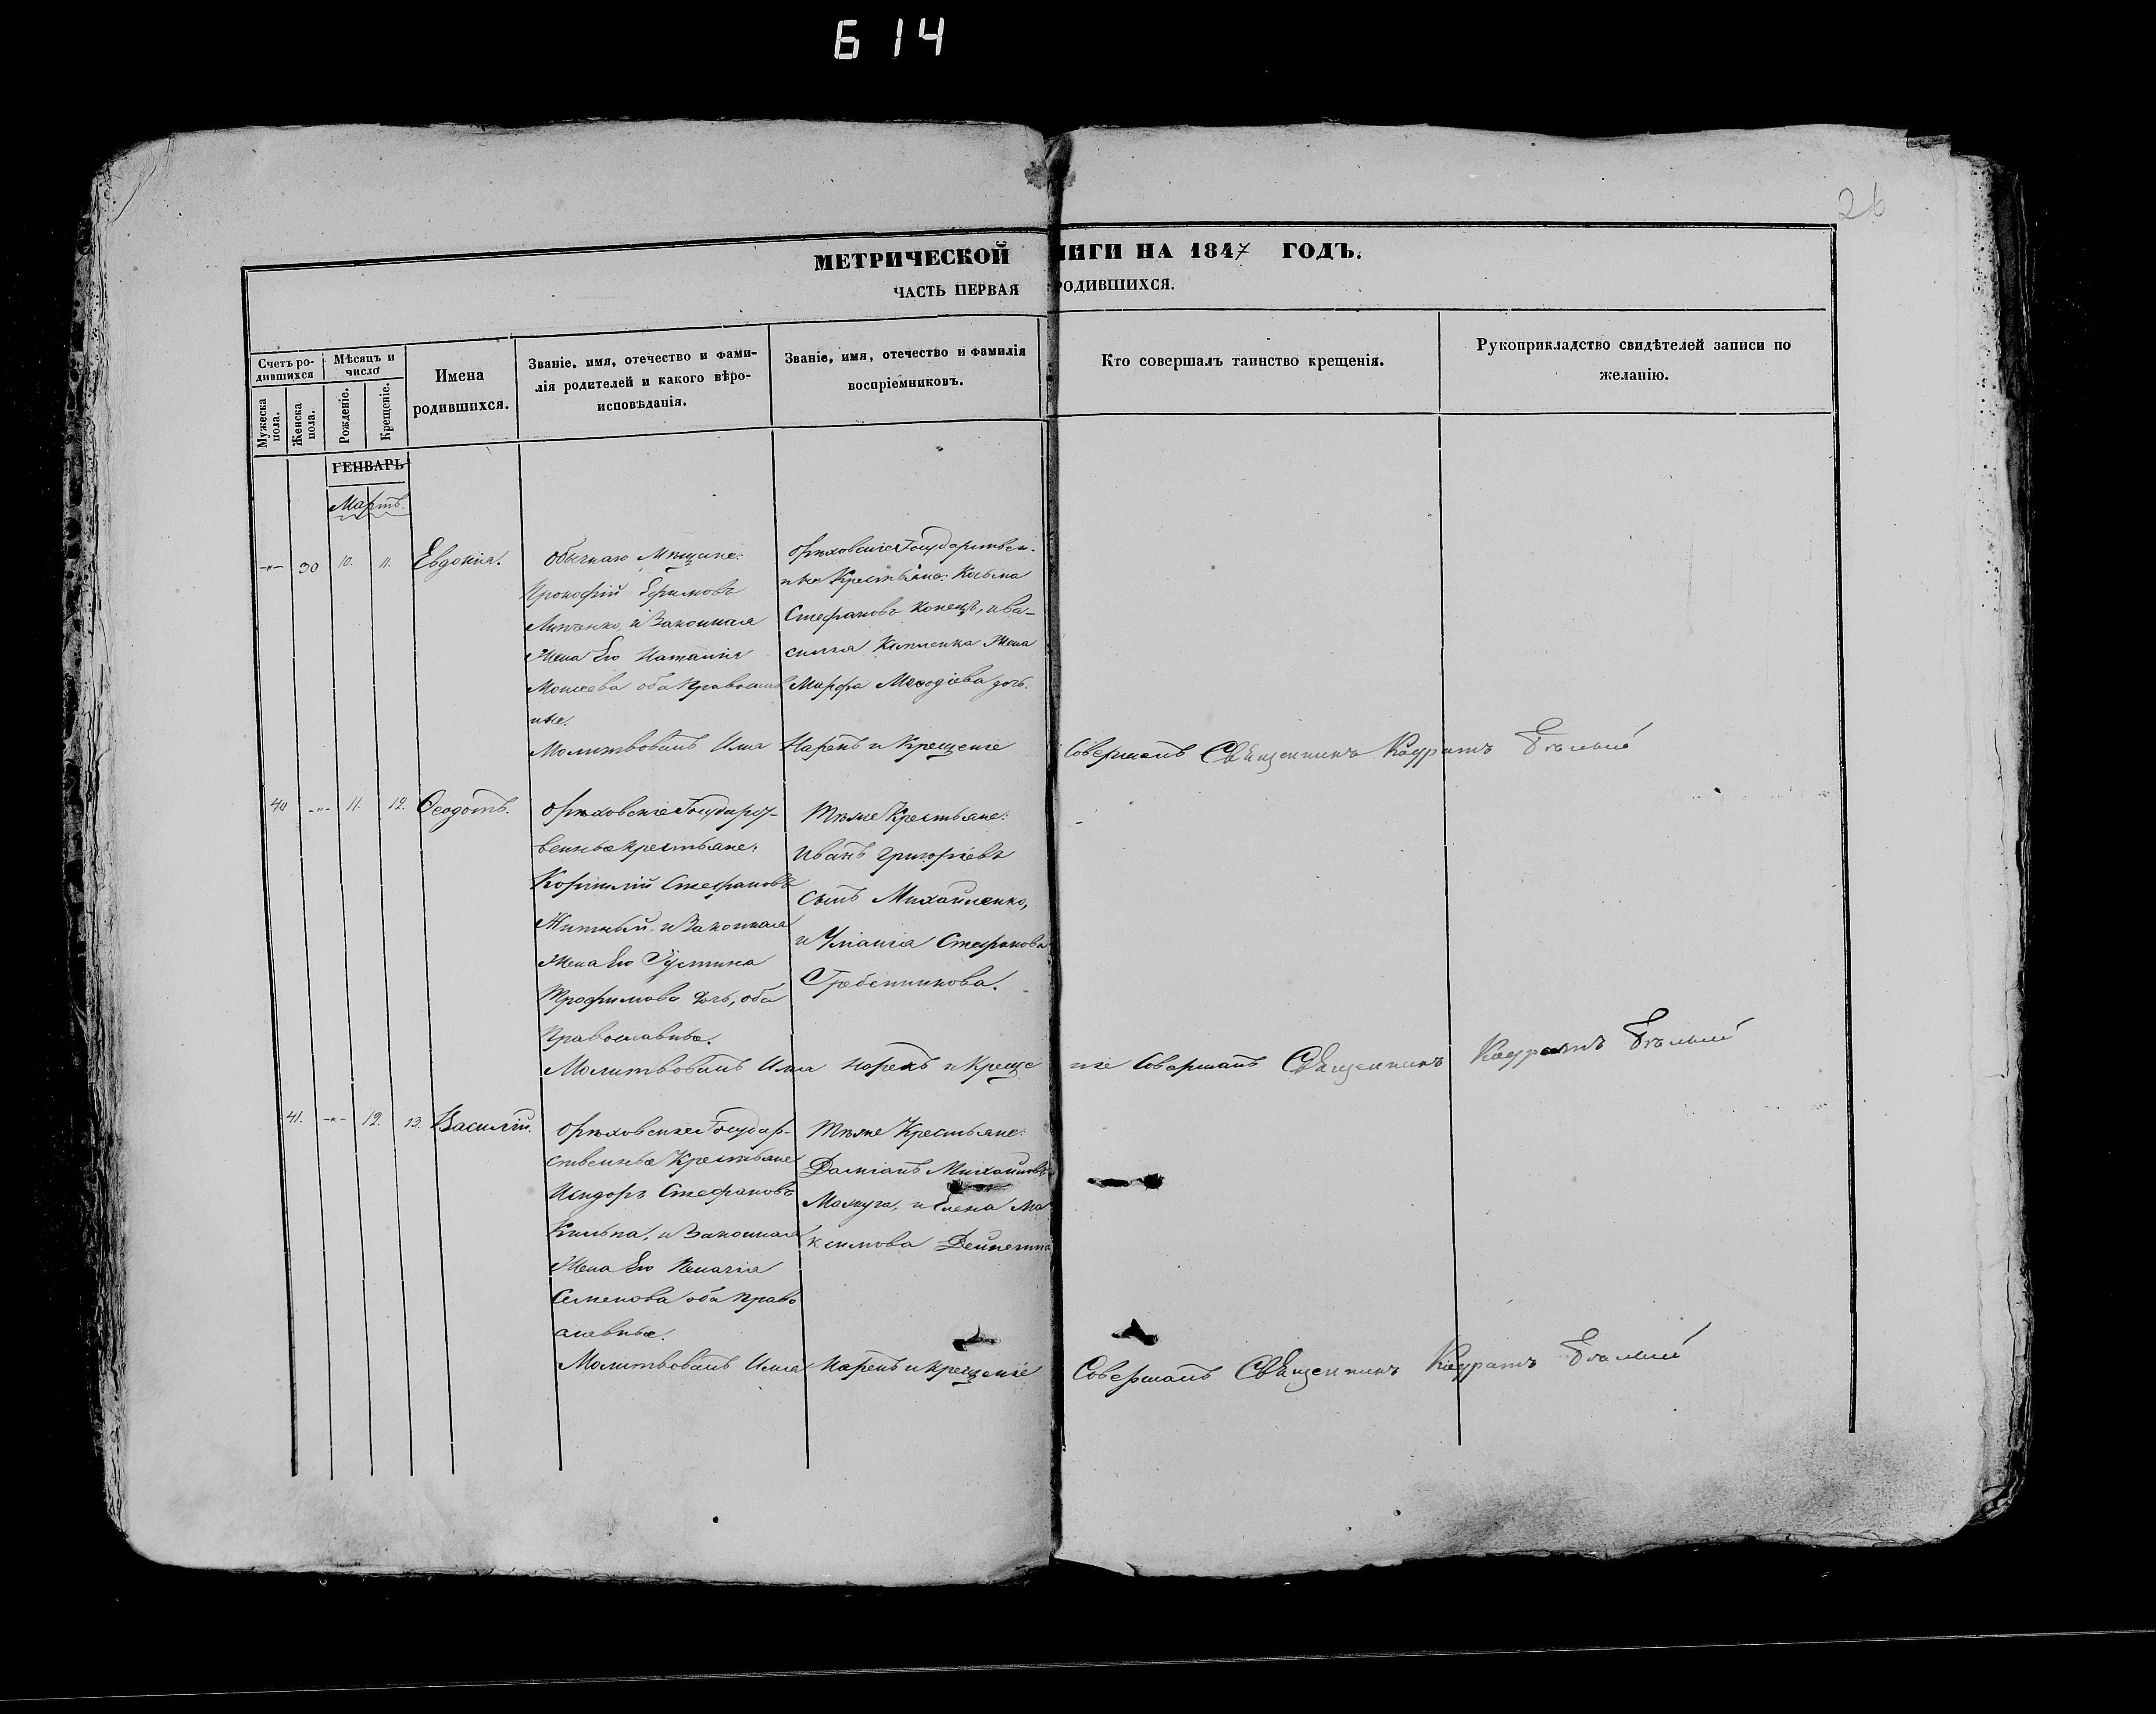 614
26
МЕТРИЧЕСКОЙ
НИГИ НА 1847 ГОДЪ.
ЧАСТЬ ПЕРВАЯ
РОДИВШИХСЯ.
Счетъ ро-
дившихся
Мужеска
пола.
Женска
пола.
Мѣсяцъ и
число
Рожденіе.
Крещеніе.
Имена
родившихся.
Званіе, имя, отечество и фами-
лія родителей и какого вѣро-
исповѣданія.
Званіе, имя, отечество и фамилія
воспріемниковъ.
Кто совершалъ таинство крещенія.
Рукоприкладство свидѣтелей записи по
желанію.
ГЕНВАРЬ
Мартъ.
-"- 30 10. 11. Евдокія.
Мѣщане:
Прокофій Ефимовъ
и Законная
Жена Его Наталия
Моисеева оба Православ
ные.
Молитвовалъ Имя
Орѣховскіе Государствен-
ные Крестьяне: Косьма
Стефановъ Конецъ, и Ва-
силия Жена
Марфа Меѳодіева дочь.
Нарекъ и Крещеніе
Совершалъ Священникъ Кодратъ Бѣлый
40 -"- 11. 12. Ѳеодотъ.
Орѣховскіе Государст-
венные Крестьяне:
Корнилій Стефановъ
Житный, и Законная
Жена Его Іустина
Трофимова дочь, оба
Православные.
Молитвовалъ Имя
Тѣже Крестьяне:
Иванъ Григорьевъ
сынъ Михайленко,
и Уліанія Стефанова
Гребенникова.
Нарекъ и Креще
ніе Совершалъ Священникъ Кодратъ Бѣлый
41. -"- 12. 13. Василій.
Орѣховскіе Государ-
ственные Крестьяне
Исидоръ Стефановъ
и Законная
Жена Его Пелагія
Семенова оба Право
славные.
Молитвовалъ Имя
Тѣже Крестьяне:
Даміанъ Михайловъ
и Елена Ма
ксимова
Нарекъ и крещеніе
Совершалъ Священникъ Кодратъ Бѣлый